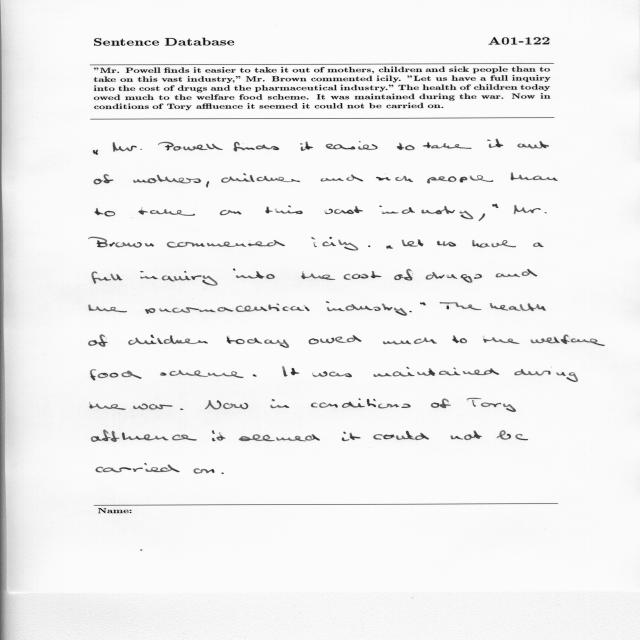 Sentence Database A01-122
"Mr. Powell finds it easier to take it out of mothers, children and sick people than to
take on this vast industry," Mr. Brown commented icily. "Let us have a full inquiry
into the cost of drugs and the pharmaceutical industry." The health of children today
owed much to the welfare food scheme. It was maintained during the war. Now in
conditions of Tory affluence it seemed it could not be carried on.
„ Mr. Powell finds it easier to take it out
of mothers, children and sick people than
to take on this vast industry," Mr.
Brown commented icily. „ Let us have a
full inquiry into the cost of drugs and
the pharmaceutical industry." The health
of children today owed much to the welfare
food scheme. It was maintained during
the war. Now in conditions of Tory
affluence it seemed it could not be
carried on.
Name: